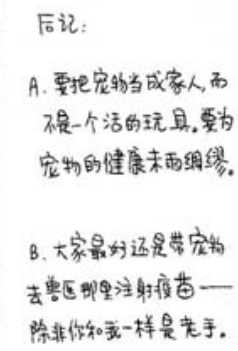 后记:
A. 要把宠物当成家人,而
不是一个活的玩具。要为
宠物的健康未雨绸缪。
B. 大家最好还是带宠物
去兽医那里注射疫苗——
除非你和我一样是老手。